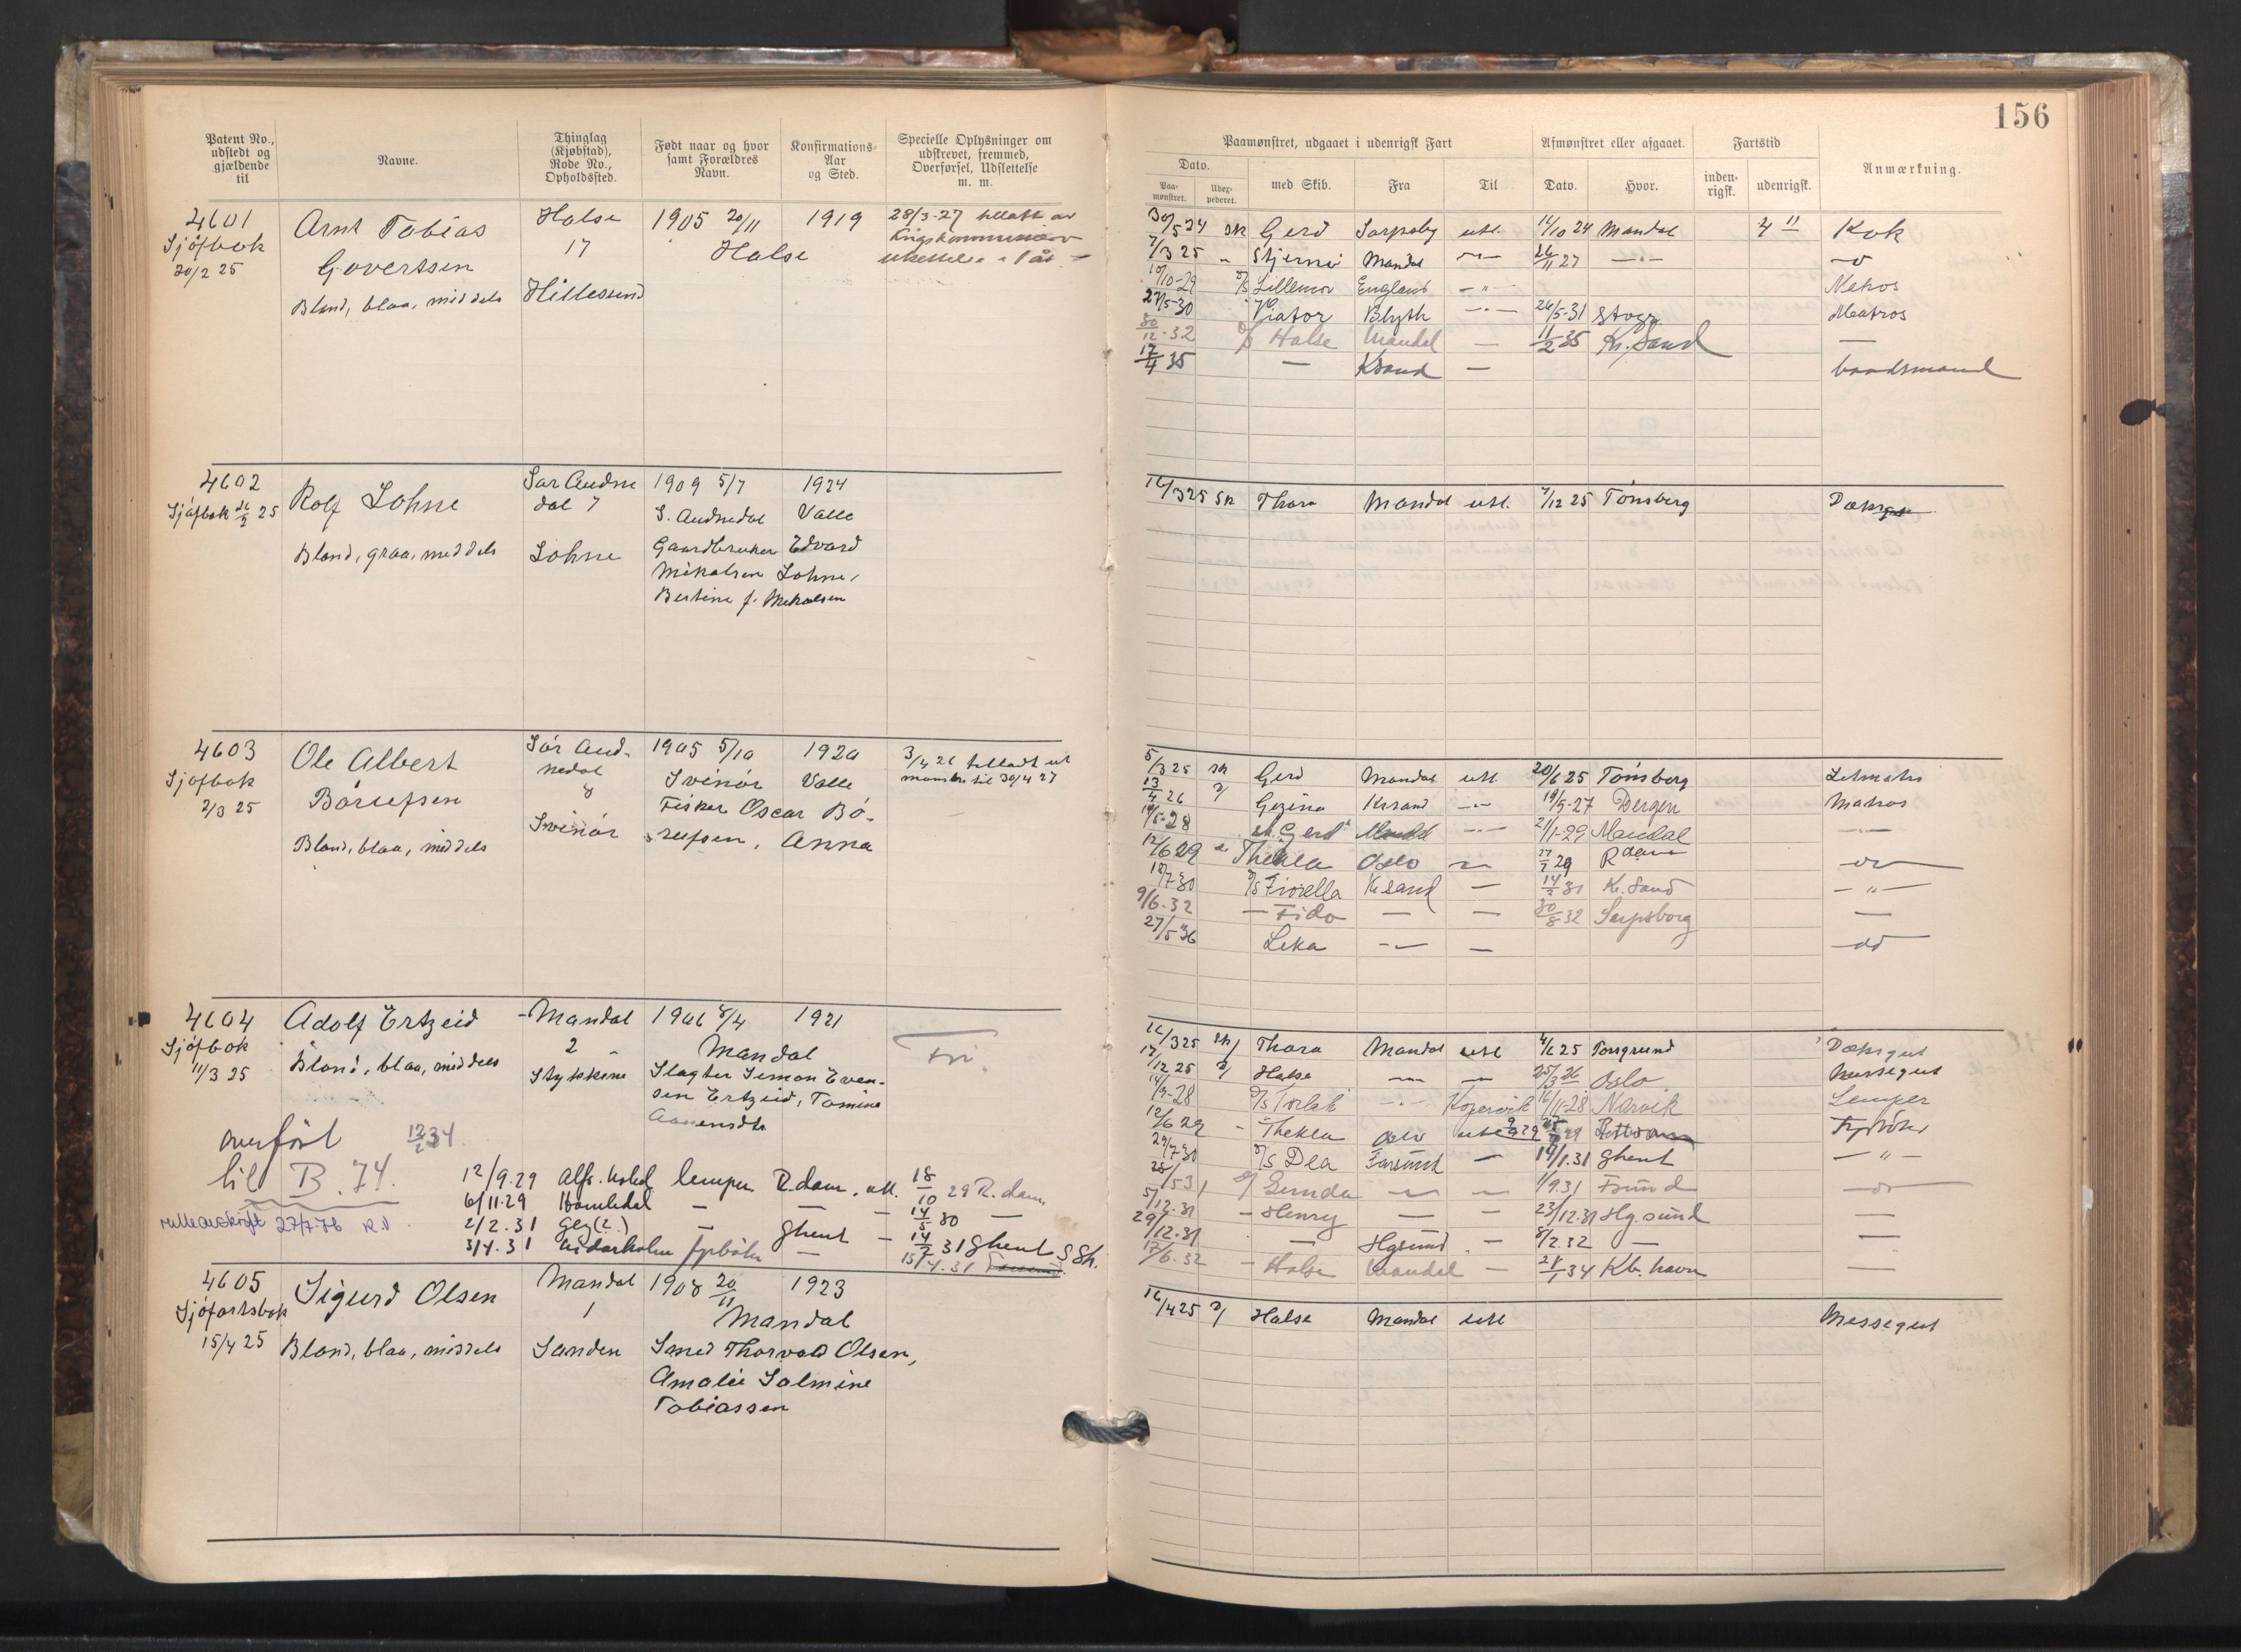 156
Patent No., udstedt og gjældende til
Navne.
Thinglag (Kjøbstad), Rode No., Opholdssted.
Født naar og hvor samt Forældres Navn.
Konfirmations- Aar og Sted.
Specielle Oplysninger om udskrevet, fremmed, Overførsel, Udslettelse m. m.
Paamønstret, udgaaet i udenrigsk Fart
Dato.
Paa- mønstret.
Udex- pederet.
med Skib.
Fra
Til
Afmønstret eller afgaaet.
Dato.
Hvor.
Fartstid
inden- rigsk.
udenrigsk.
Anmærkning.
4601
Sjöfbok
20/2 25
Arnt Tobias
Govertsen
Blond, blaa, middels
Halse
17
Hillesund
1905 20/11
Halse
1919
28/3-27 tillatt av
30/5 24 sk Gerd Sarpsbg utl. 14/10 24 Mandal 4 11 Kok
7/3 25 " Stjernö Mandal — 26/11 27 — " —
10/10-29 D/S Lillemor England — " — Matros
27/5-30 " Viator Blyth — " — 26/5-31 Matros
30/12-32 D/S Halse Mandal — 11/2 35 Kr. Sand —
17/4 35 — KSand — baadsmand
4602
Sjöfbok 26/2 25
Rolf Lohne
Blond, graa, middels
Sør Audne
dal 7
Lohne
1909 5/7
S. Audnedal
Gaardbruker Edvard
Mikalsen Lohne,
Bertine f. Mikalsen
1924
Valle
16/3 25 sk Thora Mandal utl. 7/12 25 Tönsberg Dæksgut
4603
Sjöfbok
2/3 25
Ole Albert
Börufsen
Blond, blaa, middels
Sör Aud-
nedal
8
Svinör
1905 5/10
Svinör
Fisker Oscar Bö-
rufsen, Anna
1920
Valle
3/4 26 tilladt ut
mönstr. til 30/4 27
5/3 25 sk Gerd Mandal utl 20/6 25 Tönsberg Letmatrs
13/4 26 D/ Gezina Krsand — " — 19/9-27 Bergen Matros
14/5-28 sk. Gerd Mandal — " — 21/1-29 Mandal — " —
12/6 29 Thekla Oslo — 27/7 29 Rdam — " —
18/7 30 D/S Fiorella Krsand — 14/2 31 Kr. Sand — " —
9/6-32 — Fido — — 30/8 32 Sarpsborg —
27/5-36 Leka — " — — do
4604
Sjöfbok
11/3 25
Adolf Ertzeid
Blond, blaa, middels
Mandal
2
Stykkene
1906 8/4
Mandal
Slagter Simon Even-
sen Ertzeid, Tomine
Aanensdtr
1921
Fri.
overfört 12/2 34
til B. 74.
rulleavskrift 27/7.76 R.N.
12/9.29 Alfr. Nobel lemper R.dam. utl. 18/10 29 R.dam
6/11.29 Homledal — — — 14/5 30 —
2/2.31 Gez(2.) — Ghent — 14/2 31 Ghent
3/4.31 Vidarholm fyrböter — 15/4.31
16/3 25 sk/ Thora Mandal utl 4/6 25 Porsgrund Dæksgut
12/12 25 D/ Halse — — 25/3 26 Oslo Messegut
14/9-28 D/S Torlak — " — Kopervik 16/11-28 Narvik Lemper
12/6 29 — Thekla Oslo utl Fyrböter
29/7 30 D/S Dea Farsund — 14/1.31 Ghent — " —
28/5 31 D/ Gunda — — 1/9.31 Fsund — do —
5/12.31 — Henry — — 23/12.31 Hg.sund —
29/12.31 — Hgsund — 8/2.32 — —
17/6.32 — Halse Mandal — 21/1 34 Kb. havn —
4605
Sjöfartsbok
15/4 25
Sigurd Olsen
Blond, blaa, middels
Mandal
1
Sanden
1908 20/11
Mandal
Smed Thorvald Olsen,
Amalie Salmine
Tobiassen
1923
16/4 25 D/ Halse Mandal utl Messegut